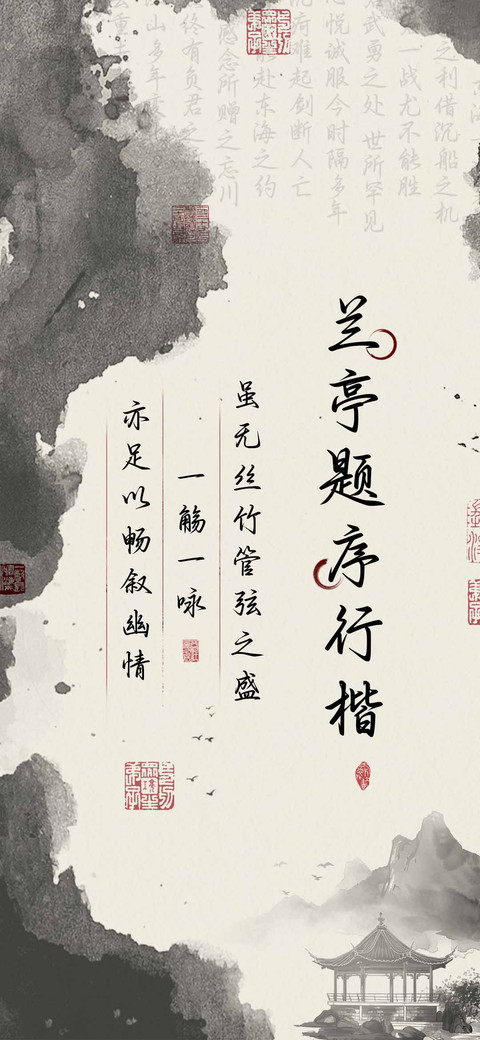 之利借沉船之机
一战尤不能胜
武勇之处 世所罕见
悦诚服今时隔多年
疴难起剑断人亡
赴东海之约
感念所赠之忘川
终有负君之
山多年
兰亭题序行楷
虽无丝竹管弦之盛
一觞一咏
亦足以畅叙幽情